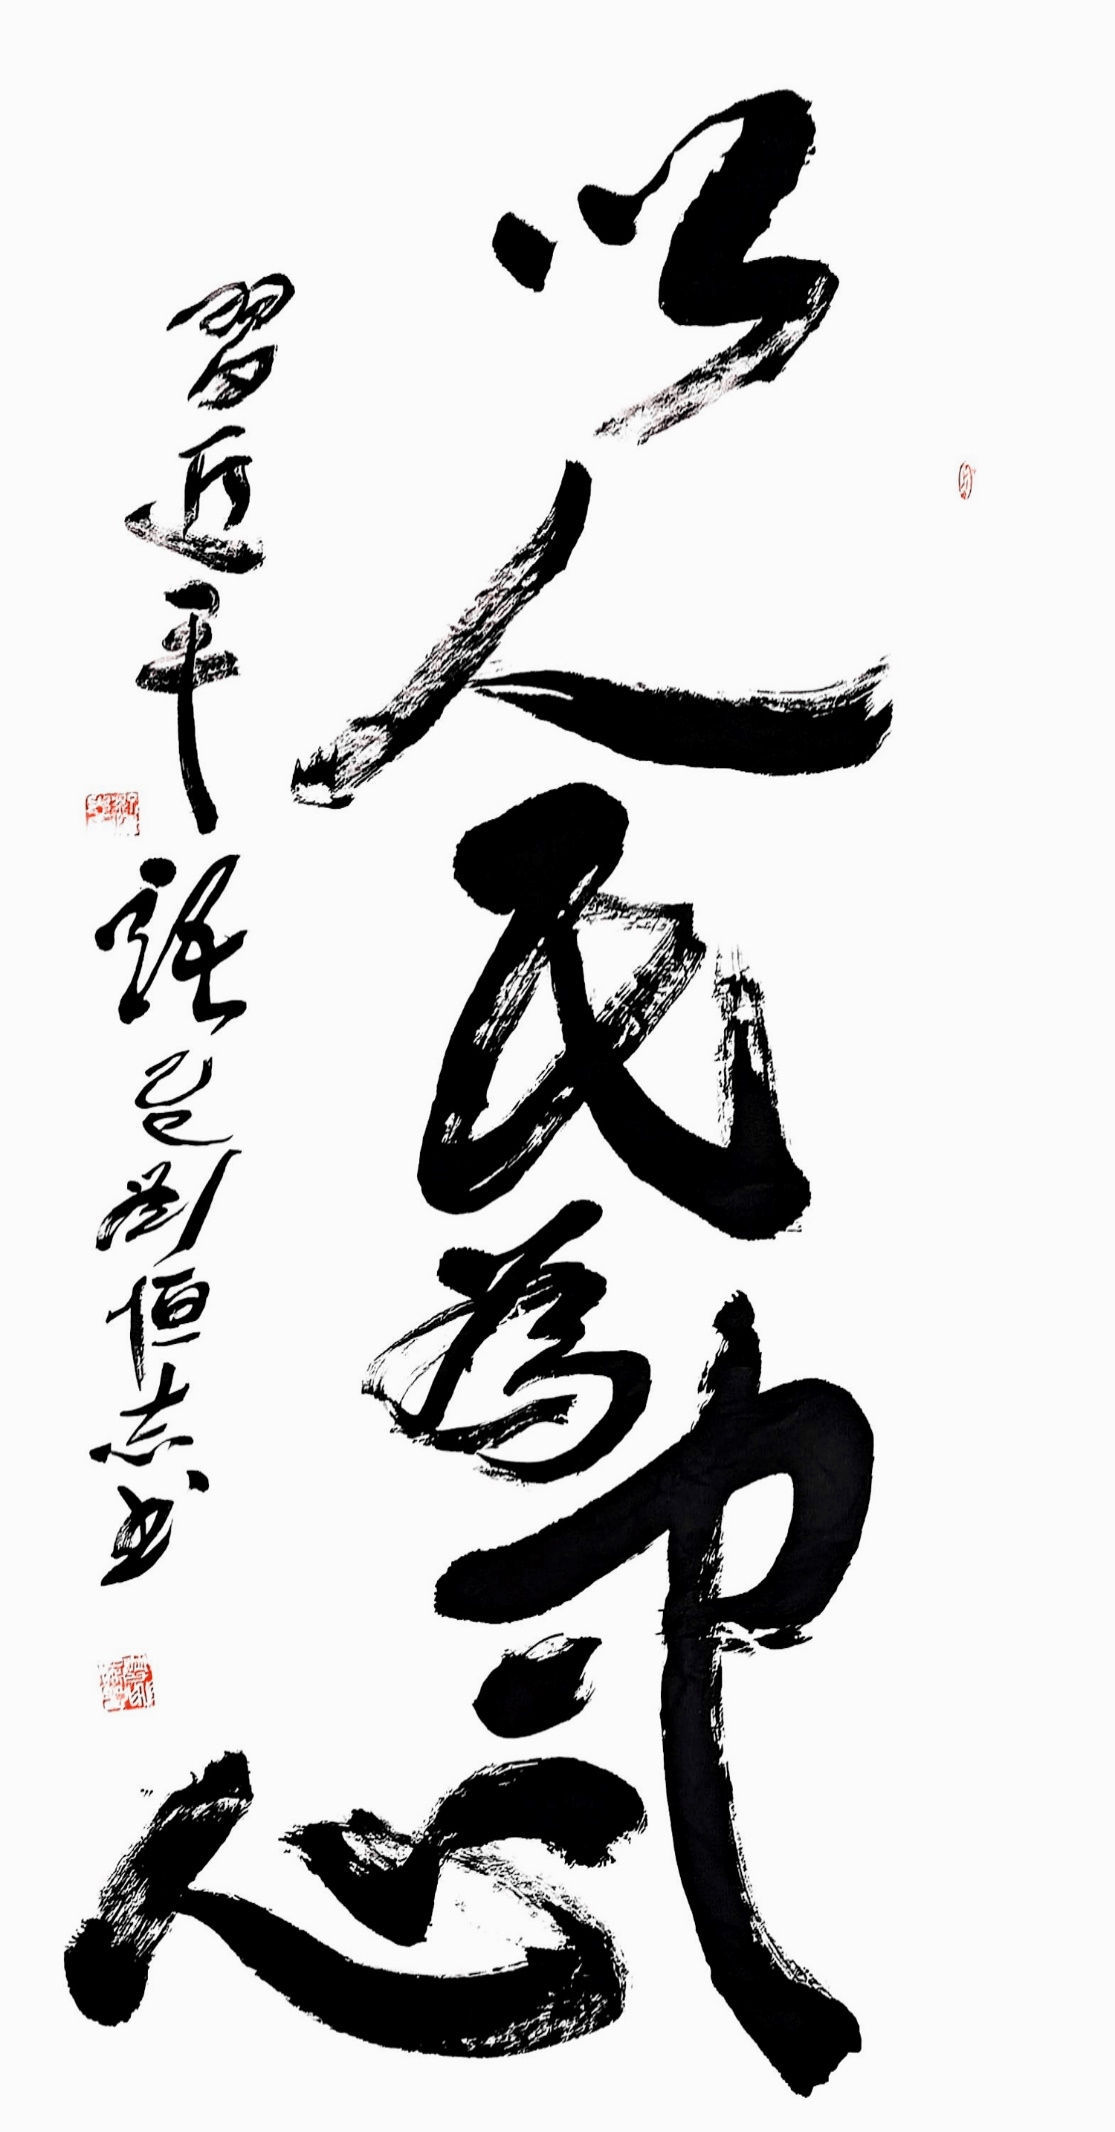 以人民為中心
習近平語 劉恒志書